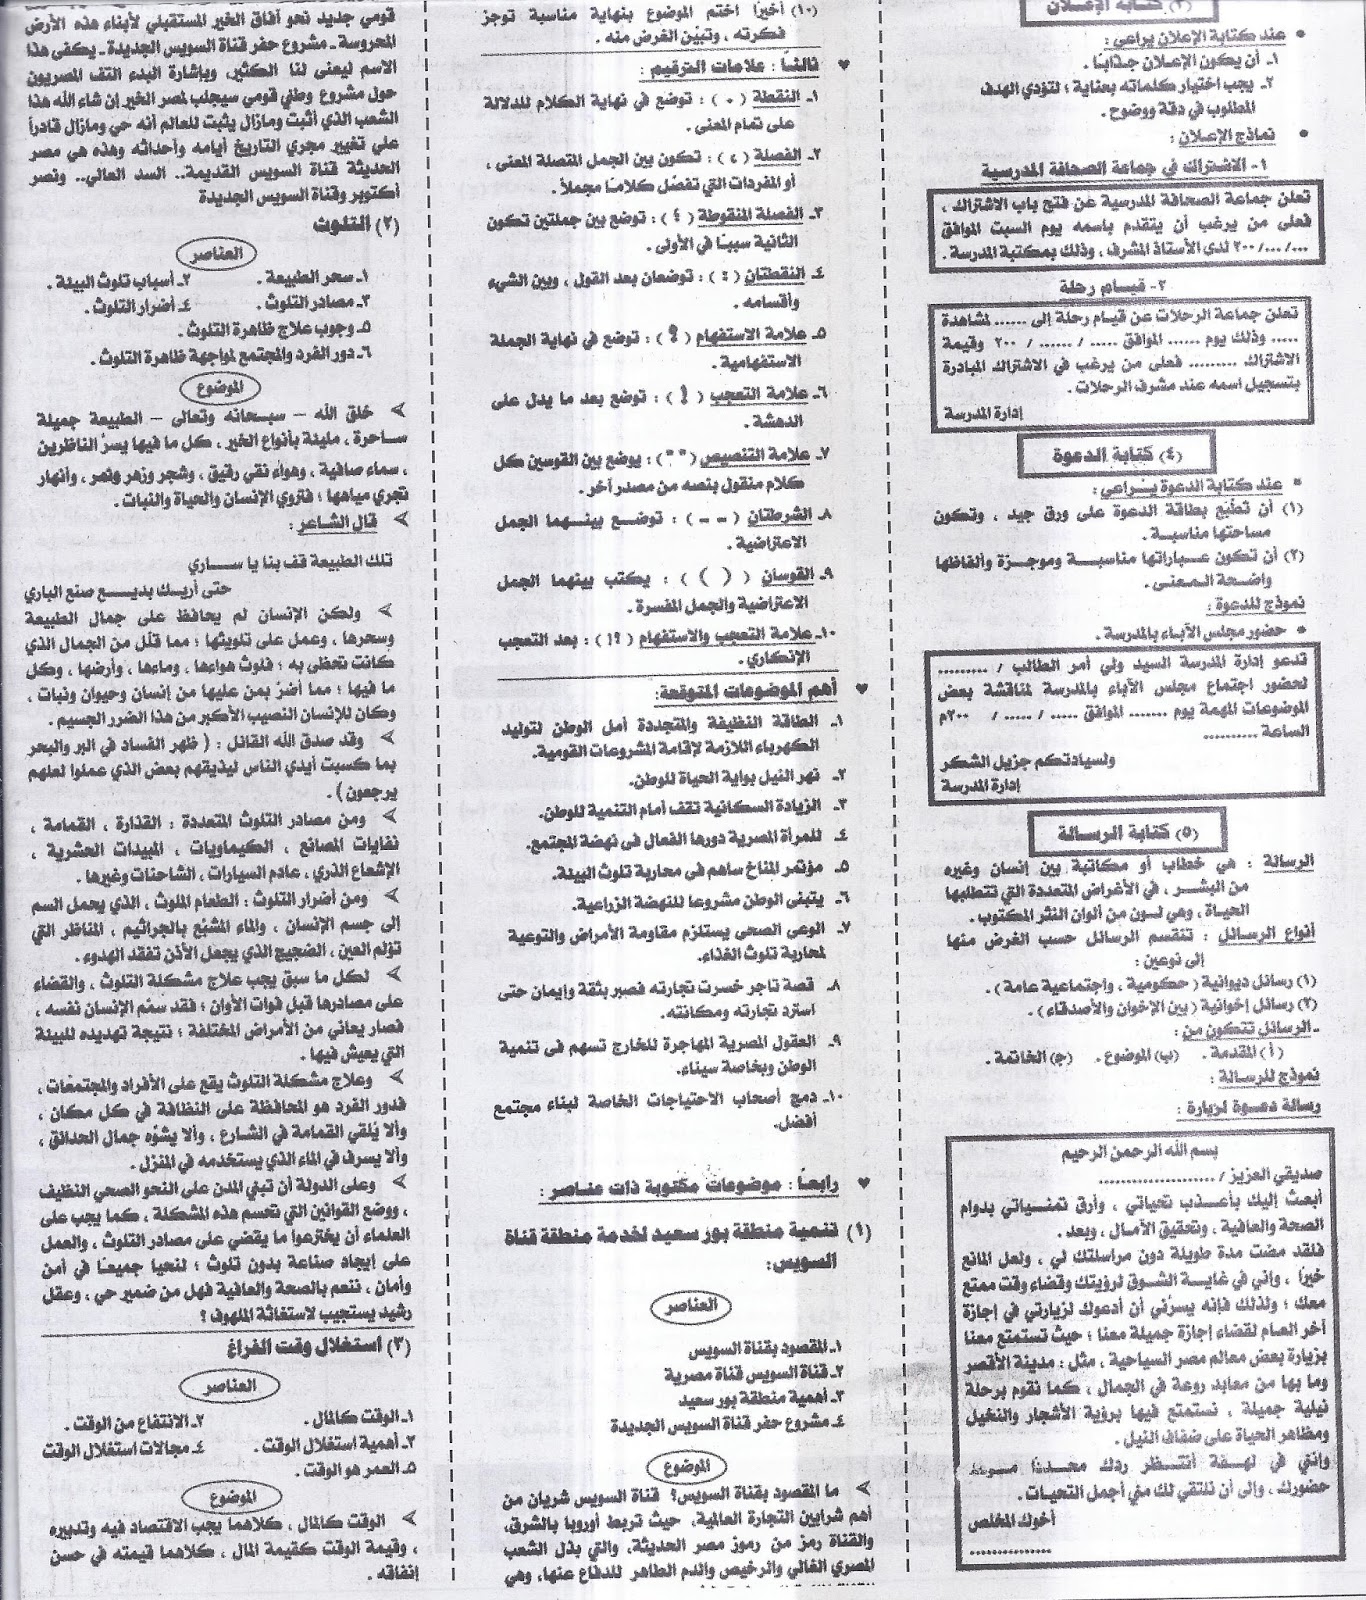 (٣) كتابة الإعلان
• عند كتابة الإعلان يراعى :
١ـ أن يكون الإعلان جذابًا .
٢ـ يجب اختيار كلماته بعناية ؛ لتؤدي الهدف
المطلوب في دقة ووضوح .
• نماذج الإعلان :
١- الاشتراك في جماعة الصحافة المدرسية
تعلن جماعة الصحافة المدرسية عن فتح باب الاشتراك ،
فعلى من يرغب أن يتقدم باسمه يوم السبت الموافق
.../.../٢٠٠ لدى الأستاذ المشرف ، وذلك بمكتبة المدرسة .
٢- قيام رحلة
تعلن جماعة الرحلات عن قيام رحلة إلى ...... لمشاهدة
..... وذلك يوم ...... الموافق ..... / ...... / ٢٠٠ وقيمة
الاشتراك ......... فعلى من يرغب في الاشتراك المبادرة
بتسجيل اسمه عند مشرف الرحلات .
إدارة المدرسة
(٤) كتابة الدعوة
• عند كتابة الدعوة يُراعى :
(١) أن تطبع بطاقة الدعوة على ورق جيد ، وتكون
مساحتها مناسبة .
(٢) أن تكون عباراتها مناسبة وموجزة وألفاظها
واضحة المعنى .
نموذج للدعوة :
• حضور مجلس الآباء بالمدرسة .
تدعو إدارة المدرسة السيد ولي أمر الطالب / .........
لحضور اجتماع مجلس الآباء بالمدرسة لمناقشة بعض
الموضوعات المهمة يوم ....... الموافق ..... / ..... / ٢٠٠م
الساعة ..........
ولسيادتكم جزيل الشكر
إدارة المدرسة
(٥) كتابة الرسالة
الرسالة : هي خطاب أو مكاتبة بين إنسان وغيره
من البشر ، في الأغراض المتعددة التي تتطلبها
الحياة ، وهي لون من ألوان النثر المكتوب .
أنواع الرسائل : تنقسم الرسائل حسب الغرض منها
إلى نوعين :
(١) رسائل ديوانية ( حكومية ، واجتماعية عامة ) .
(٢) رسائل إخوانية ( بين الإخوان والأصدقاء ) .
ـ الرسائل تتكون من :
( أ ) المقدمة . (ب) الموضوع . (ج) الخاتمة .
نموذج للرسالة :
رسالة دعوة لزيارة :
بسم الله الرحمن الرحيم
صديقي العزيز / ....................
أبعث إليك بأعذب تحياتي ، وأرق تمنياتي بدوام
الصحة والعافية ، وتحقيق الآمال ، وبعد .
فلقد مضت مدة طويلة دون مراسلتك لي ، ولعل المانع
خيرًا ، وإني في غاية الشوق لرؤيتك وقضاء وقت ممتع
معك ؛ ولذلك فإنه يسرني أن أدعوك لزيارتي في إجازة
آخر العام لقضاء إجازة جميلة معنا ؛ حيث تستمتع معنا
بزيارة بعض معالم مصر السياحية ، مثل : مدينة الأقصر
وما بها من معابد روعة في الجمال ، كما نقوم برحلة
نيلية جميلة ، نستمتع فيها برؤية الأشجار والنخيل
ومظاهر الحياة على ضفاف النيل .
وإنني في لهفة أنتظر ردك محددًا موعد
حضورك ، وإلى أن نلتقي لك مني أجمل التحيات .
أخوك المخلص
...............
(١٠) أخيرًا اختم الموضوع بنهاية مناسبة توجز
فكرته ، وتبيّن الغرض منه .
♥ ثالثًا : علامات الترقيم :
١ـ النقطة ( . ) : توضع في نهاية الكلام للدلالة
على تمام المعنى .
٢ـ الفصلة ( ، ) : تكون بين الجمل المتصلة المعنى ،
أو المفردات التي تفصّل كلامًا مجملاً .
٣ـ الفصلة المنقوطة ( ؛ ) : توضع بين جملتين تكون
الثانية سببًا في الأولى .
٤ـ النقطتان ( : ) : توضعان بعد القول ، وبين الشيء
وأقسامه .
٥ـ علامة الاستفهام ( ؟ ) : توضع في نهاية الجملة
الاستفهامية .
٦ـ علامة التعجب ( ! ) : توضع بعد ما يدل على
الدهشة .
٧ـ علامة التنصيص (" ") : يوضع بين القوسين كل
كلام منقول بنصه من مصدر آخر .
٨ـ الشرطتان ( ـ ـ ) : توضع بينهما الجمل
الاعتراضية .
٩ـ القوسان ( ( ) ) : يكتب بينهما الجمل
الاعتراضية والجمل المفسرة .
١٠ـ علامة التعجب والاستفهام ( ؟! ) : بعد التعجب
الإنكاري .
♥ أهم الموضوعات المتوقعة:
١ـ الطاقة النظيفة والمتجددة أمل الوطن لتوليد
الكهرباء اللازمة لإقامة المشروعات القومية.
٢ـ نهر النيل بوابة الحياة للوطن.
٣ـ الزيادة السكانية تقف أمام التنمية للوطن.
٤ـ للمرأة المصرية دورها الفعال فى نهضة المجتمع.
٥ـ مؤتمر المناخ ساهم فى محاربة تلوث البيئة.
٦ـ يتبنى الوطن مشروعا للنهضة الزراعية.
٧ـ الوعى الصحي يستلزم مقاومة الأمراض والتوعية
لمحاربة تلوث الغذاء.
٨ـ قصة تاجر خسرت تجارته فصبر بثقة وإيمان حتى
استرد تجارته ومكانته.
٩ـ العقول المصرية المهاجرة للخارج تسهم فى تنمية
الوطن وبخاصة سيناء.
١٠ـ دمج أصحاب الاحتياجات الخاصة لبناء مجتمع
أفضل.
♥ رابعًا : موضوعات مكتوبة ذات عناصر :
(١) تنمية منطقة بور سعيد لخدمة منطقة قناة
السويس:
العناصر
١ـ المقصود بقناة السويس
٢ـ قناة السويس قناة مصرية
٣ـ أهمية منطقة بور سعيد
٤ـ مشروع حفر قناة السويس الجديدة
الموضوع
➤ ما المقصود بقناة السويس؟ قناة السويس شريان من
أهم شرايين التجارة العالمية، حيث تربط أوروبا بالشرق،
والقناة رمز من رموز مصر الحديثة، والتي بذل الشعب
المصري الغالي والرخيص والدم الطاهر للدفاع عنها، وهي
قومي جديد نحو آفاق الخير المستقبلي لأبناء هذه الأرض
المحروسة ـ مشروع حفر قناة السويس الجديدة ـ يكفى هذا
الاسم ليعنى لنا الكثير، وبإشارة البدء التف المصريون
حول مشروع وطني قومي سيجلب لمصر الخير إن شاء الله هذا
الشعب الذي أثبت ومازال يثبت للعالم أنه حي ومازال قادراً
علي تغيير مجري التاريخ أيامه وأحداثه وهذه هي مصر
الحديثة قناة السويس القديمة.. السد العالي.. ونصر
أكتوبر وقناة السويس الجديدة
(٢) التلوث
العناصر
١ـ سحر الطبيعة . ٢ـ أسباب تلوث البيئة .
٣ـ مصادر التلوث . ٤ـ أضرار التلوث .
٥ـ وجوب علاج ظاهرة التلوث .
٦ـ دور الفرد والمجتمع لمواجهة ظاهرة التلوث .
الموضوع
➤ خلق الله – سبحانه وتعالى – الطبيعة جميلة
ساحرة ، مليئة بأنواع الخير ، كل ما فيها يسرّ الناظرين
، سماء صافية ، وهواء نقي رقيق ، وشجر وزهر وثمر ، وأنهار
تجري مياهها ؛ فتروي الإنسان والحياة والنبات .
➤ قال الشاعر :
تلك الطبيعة قف بنا يا ساري
حتى أريك بديع صنع الباري
➤ ولكن الإنسان لم يحافظ على جمال الطبيعة
وسحرها ، وعمل على تلويثها ؛ مما قلّل من الجمال الذي
كانت تحظى به ؛ فلوث هواءها ، وماءها ، وأرضها ، وكل
ما فيها ؛ مما أضرّ بمن عليها من إنسان وحيوان ونبات ،
وكان للإنسان النصيب الأكبر من هذا الضرر الجسيم .
➤ وقد صدق الله القائل : ( ظهر الفساد في البر والبحر
بما كسبت أيدي الناس ليذيقهم بعض الذي عملوا لعلهم
يرجعون ) .
➤ ومن مصادر التلوث المتعددة : القذارة ، القمامة ،
نفايات المصانع ، الكيماويات ، المبيدات الحشرية ،
الإشعاع الذري ، عادم السيارات ، الشاحنات وغيرها .
➤ ومن أضرار التلوث : الطعام الملوث ، الذي يحمل السم
إلى جسم الإنسان ، والماء المشبّع بالجراثيم ، المناظر التي
تؤلم العين ، الضجيج الذي يجعل الأذن تفقد الهدوء .
➤ لكل ما سبق يجب علاج مشكلة التلوث ، والقضاء
على مصادرها قبل فوات الأوان ؛ فقد سمّم الإنسان نفسه ،
فصار يعاني من الأمراض المختلفة ؛ نتيجة تهديده للبيئة
التي يعيش فيها .
➤ وعلاج مشكلة التلوث يقع على الأفراد والمجتمعات ،
فدور الفرد هو المحافظة على النظافة في كل مكان ،
وألا يلقي القمامة في الشارع ، وألا يشوّه جمال الحدائق ،
وألا يسرف في الماء الذي يستخدمه في المنزل .
➤ وعلى الدولة أن تبني المدن على النحو الصحي النظيف
، ووضع القوانين التي تحسم هذه المشكلة ، كما يجب على
العلماء أن يخترعوا ما يقضي على مصادر التلوث ، والعمل
على إيجاد صناعة بدون تلوث ؛ لنحيا جميعًا في أمن
وأمان ، ننعم بالصحة والعافية فهل من ضمير حي ، وعقل
رشيد يستجيب لاستغاثة الملهوف ؟
(٣) استغلال وقت الفراغ
العناصر
١ـ الوقت كالمال . ٢ـ الانتفاع من الوقت .
٣ـ أهمية استغلال الوقت . ٤ـ مجالات استغلال الوقت
٥ـ العمر هو الوقت .
الموضوع
➤ الوقت كالمال ، كلاهما يجب الاقتصاد فيه وتدبيره
، وقيمة الوقت كقيمة المال ، كلاهما قيمته في حسن
إنفاقه .